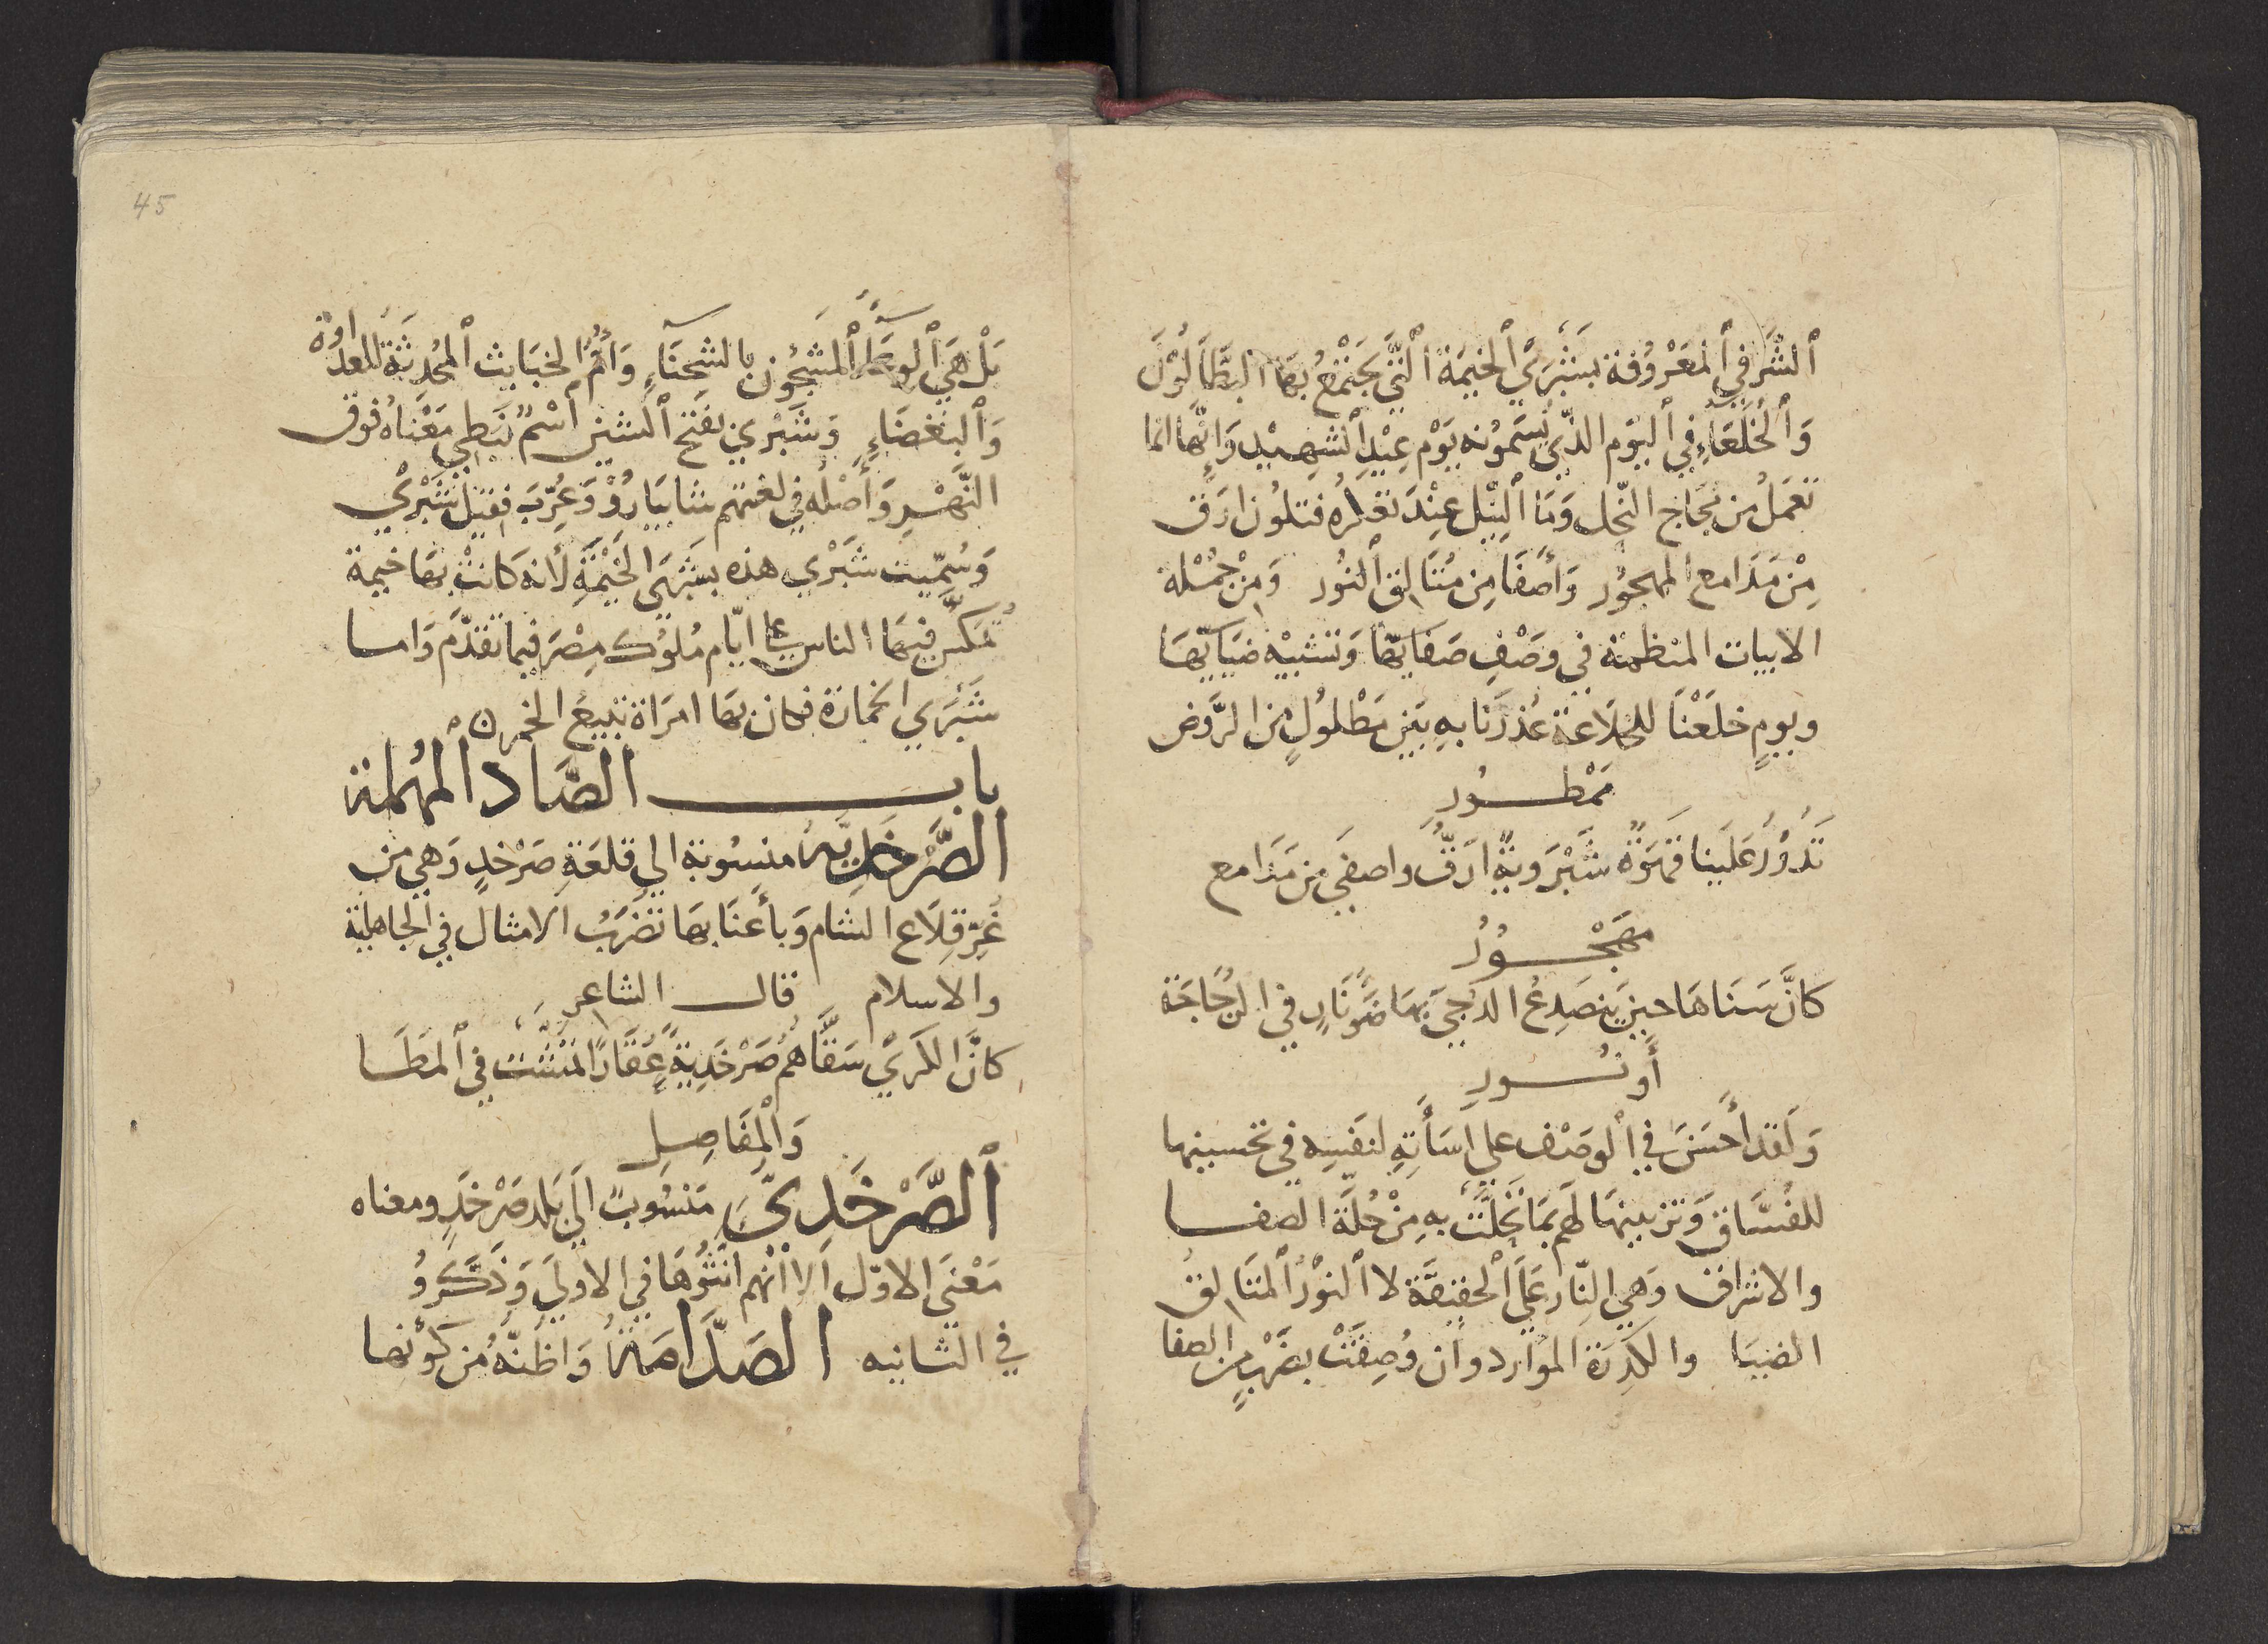 ٱلشَّرفي ٱلمَعْرُوفة بشَبْرَيْ ٱلخيمَة ٱلتَّي يَجتْمعُ بهَا البَطَّالوُنَ
وَٱلخُلَعَاءِ في ٱليَوم الذّي نُسَموُنه يَوْم عِيْدِ ٱلشهِيْد وَانّها انما
تعمَلُ من مُجَاج النّحل وَمَا ٱلنِيْل عِنْدَ تغيرُه فتلوُن ارَق
مِنْ مَدَامع المهجوُر وَأصفَا مِن مُتَالق ٱلنُور وَمِنْ جُمْلة
الابيات المنظمنة في وَصْفِ صَفايّها وَتشبيْه ضيَايّهَا
ويومٍ خلَعْنَا للخلَاعَة عُذرَنا بهِ بَين مَطْلولٍ من الرَّوض
مَمْطــورِ
تَدُوْرُ عَلَينا قهَوَةٌ شَبْرَويةٌ ارَقُّ واصفي مِن مَدَامع
مهَجْــوُرُ
كانَّ سَنَاهَا حينَ ينصَدِعُ الدُجيَ بهَا ضَوُنَارٍ في الزُجَاجَة
أَونُــورِ
وَلَقد أحَسَنَ في ٱلوصَف علي اسَأتِهِ لنفسِه في تحسينها
للفُسَّاق وَتزيينهَا لهَم بمَا تَحَلَّتَ بهِ مِنْ حُلَة الصفــا
والاشراق وَهي النّار عَليَ ٱلحقيقَة لا ٱلنوْرُ ٱلمتَالقُ
الضيَا والكَدِرَة المواردوان وُصِفَتْ بضَرْبٍ من الصفا
45
بَلْ هيَ ٱلوِعَآءُ ٱلمشَحُون بالشحنَآءِ وَأمُّ الخبَايث ٱلمُحْدثَةُ للعدَاوة
وَٱلبغضَاءِ وَشَبْري بفَتح ٱلشين اسْمٌ نَبطي مَعْنَاهُ فوق
النَّهْـرِ وَأصْلُه في لغتهم شابيَارُوْ وَعُرّبَ فقيل شَبْري
وَسُمّيت شَبْري هذه بشَبْرَي الخَيْمَةِ لأنه كَانتْ بهَا خيمة
يُمكَسُ فيهَا الناس علي ايّام مُلوُك مِصْرَ فيما تقدّم وَامــا
شَبْرَي الخمارَة فكان بهَا امرَاة تبيعُ الخمر
بابـــــ الصَّاد ٱلمهُملة
الصَّرْخَدِيّة مَنسُوبة الي قلعَةِ صَرْخدٍ وَهي من
غُرِّ قِلَاع الشام وَبأعنَابهَا تضَرَبُ الامثال في الجاهلية
والاسلام قالــ الشاعر
كانَّ الكرَيَ سَقَّاهُم صَرْخَدِيةً عُقَارًا تمشّت في ٱلمطَــا
وَٱلمفَاصِلِ
ٱلصَّرْخَدِيّ مَنسُوبٌ الَي بَلد صَرْخَدٍ ومعناه
مَعْنيَ الاوّل اَلا انّهم انثَوُهَا في الاوليَ وَذَكَرُوُ
في الثانيه الصَدَّامَة وَاظنّهُ مُن كَوْنها